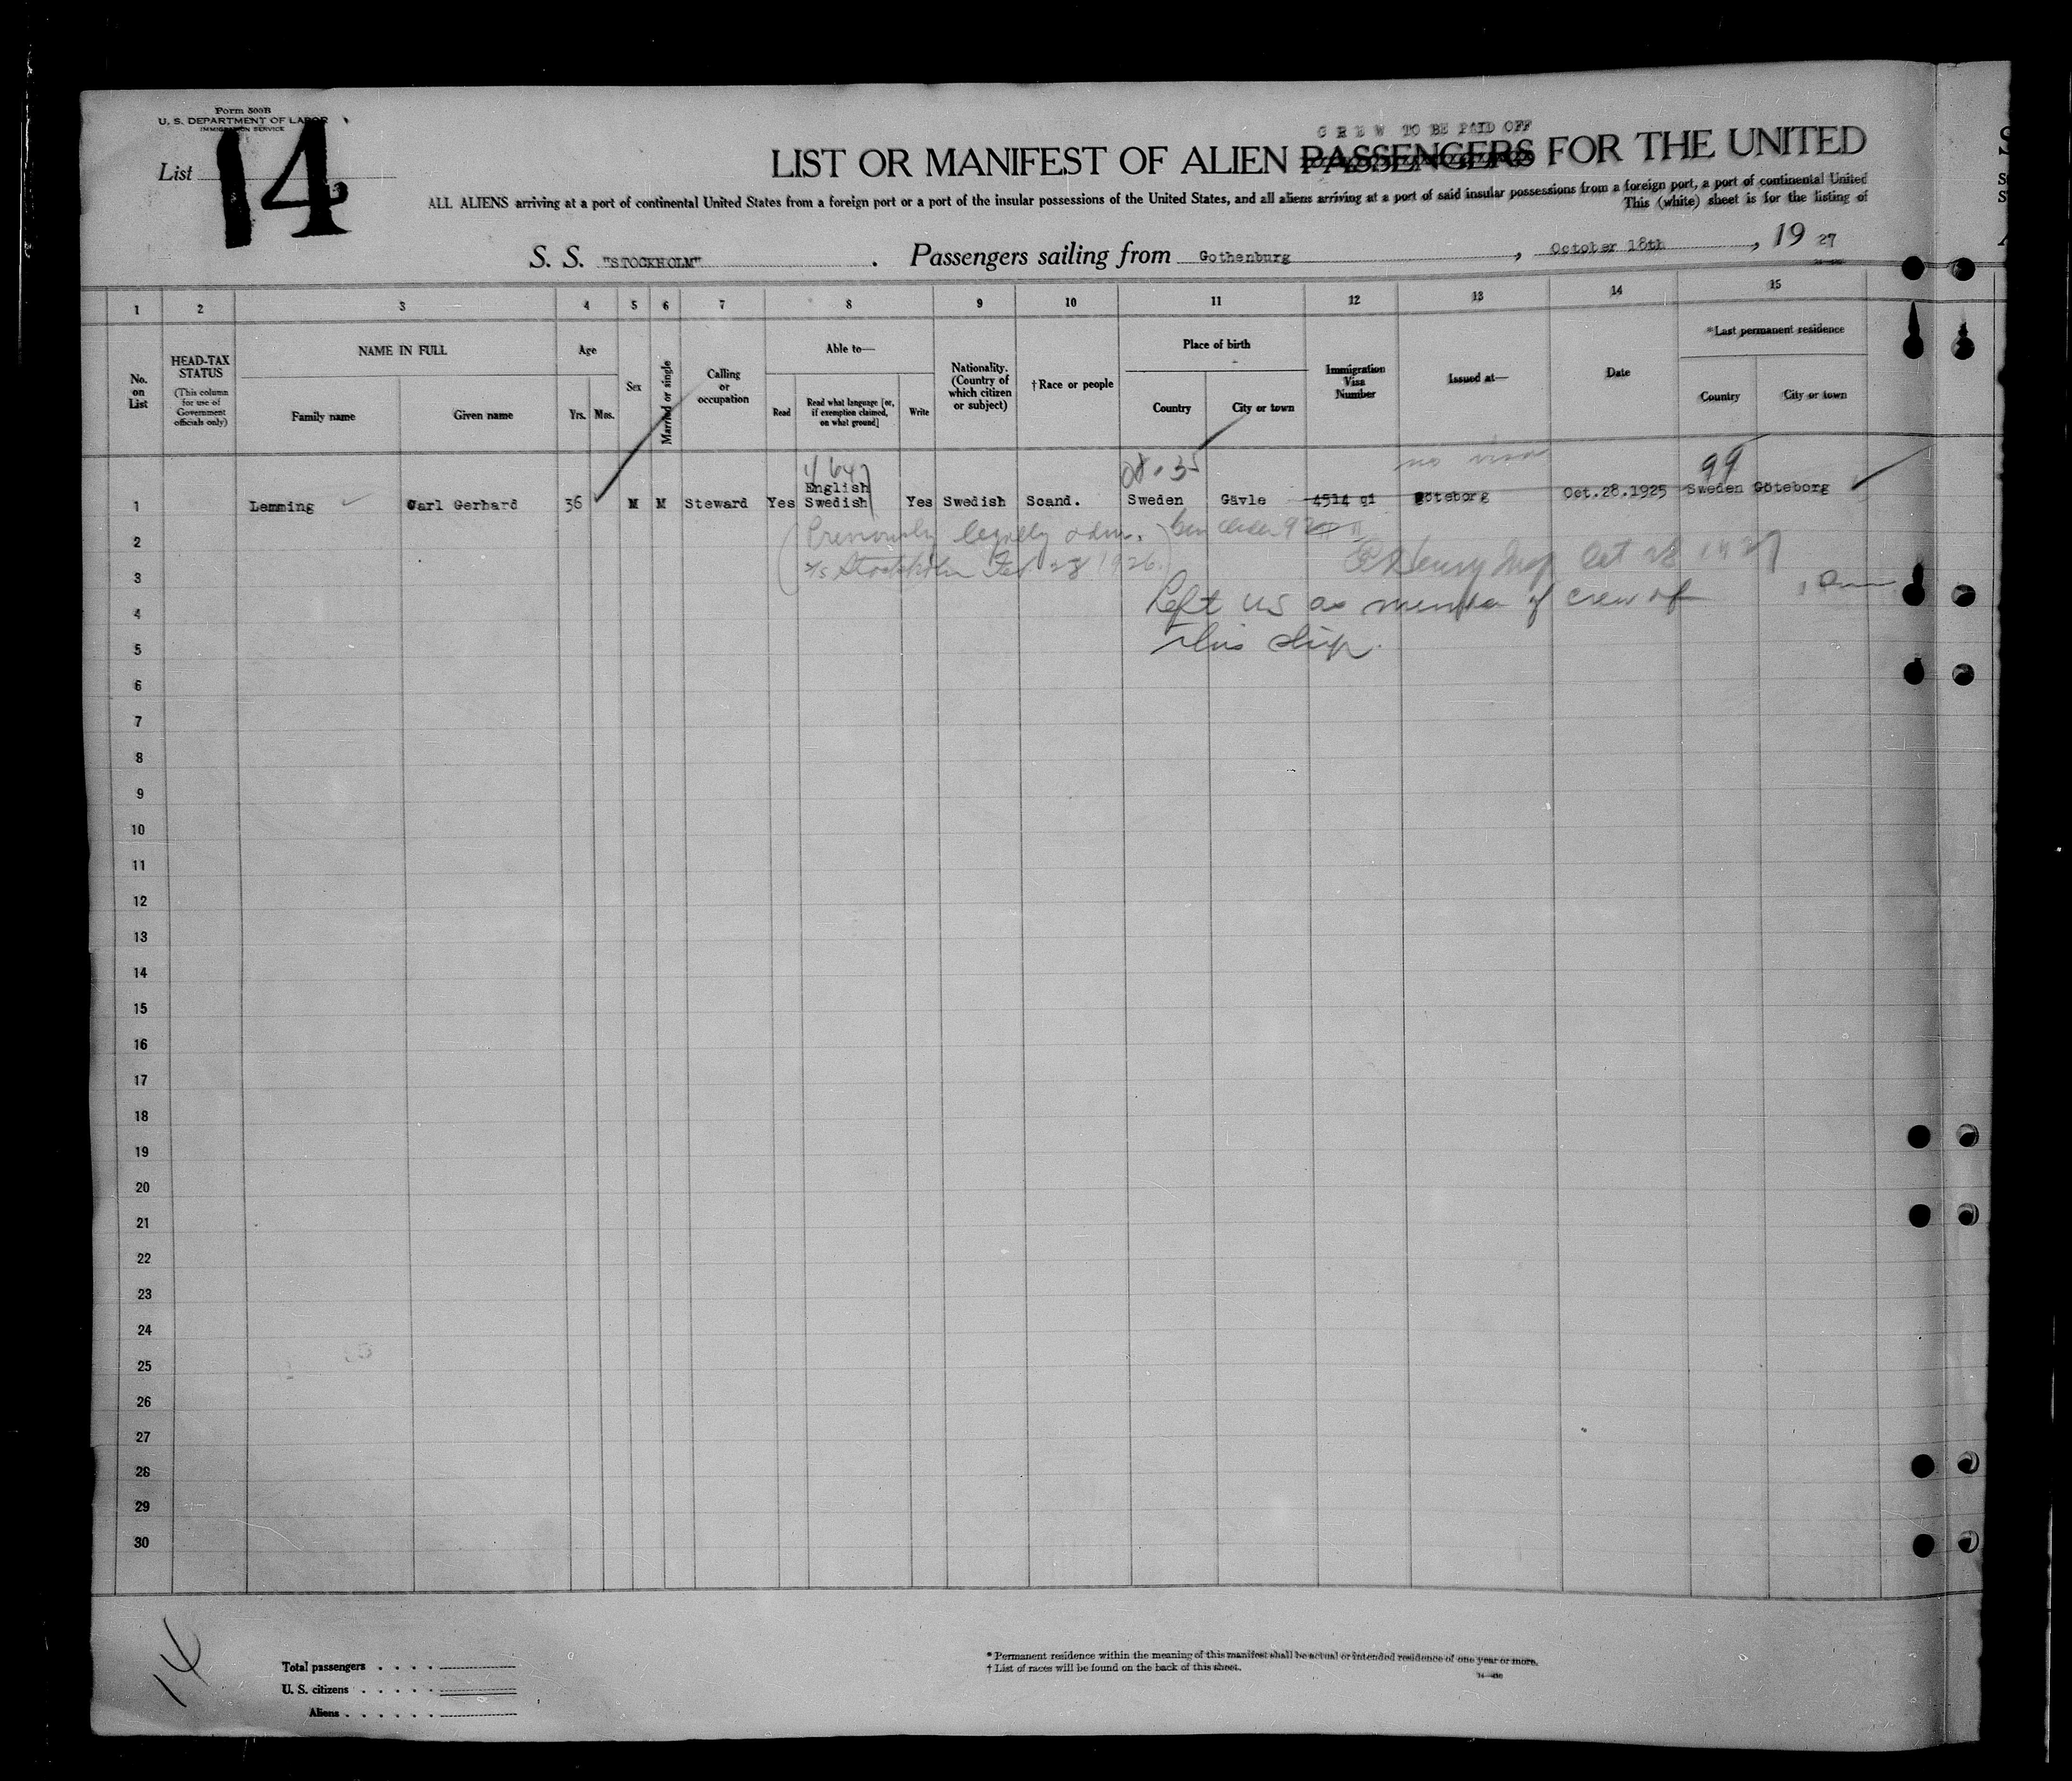 Form 500B
U. S. DEPARTMENT OF LABOR
IMMIGRATION SERVICE
List 14
CREW TO BE PAID OFF
LIST OR MANIFEST OF ALIEN PASSENGERS FOR THE UNITED
ALL ALIENS arriving at a port of continental United States from a foreign port or a port of the insular possessions of the United States, and all aliens arriving at a port of said insular possessions from a foreign port, a port of continental United
This (white) sheet is for the listing of
S. S. "STOCKHOLM" . Passengers sailing from Gothenburg , October 18th , 19 27
1 2 3 4 5 6 7 8 9 10 11 12 13 14 15
No. on List
HEAD-TAX STATUS
(This column for use of Government officials only)
NAME IN FULL
Family name Given name
Age
Yrs. Mos.
Sex
Married or single
Calling or occupation
Able to—
Read
Read what language [or, if exemption claimed, on what ground]
Write
Nationality. (Country of which citizen or subject)
†Race or people
Place of birth
Country City or town
Immigration Visa Number
Issued at—
Date
*Last permanent residence
Country City or town
no visa
99
English
1 Lemming Carl Gerhard 36 M M Steward Yes Swedish Yes Swedish Scand. Sweden Gävle 4514 qi Göteborg Oct.28.1925 Sweden Göteborg
(Previously legally adm.
s/s Stockholm Feb 28 1926.)
Left US as member of crew of
this ship.
2
3
4
5
6
7
8
9
10
11
12
13
14
15
16
17
18
19
20
21
22
23
24
25
26
27
28
29
30
14
Total passengers . . . .
U. S. citizens . . . . .
Aliens . . . . . .
* Permanent residence within the meaning of this manifest shall be actual or intended residence of one year or more.
† List of races will be found on the back of this sheet.